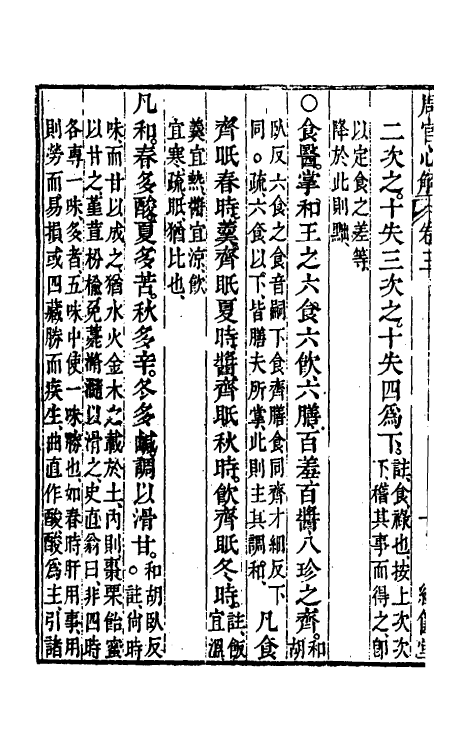 周官心解 卷三
二次之十失三次之十失四爲下註食祿也按上次次
下稽其事而得之卽
以定食之差等
降於此則黜
○食醫掌和王之六食六飲六膳百羞百醬八珍之齊和
胡
臥反六食之食音嗣下食齊膳食同齊才細反下
同○疏六食以下皆膳夫所掌此則主其調和
凡食
齊眡春時羹齊眡夏時醬齊眡秋時飲齊眡冬時註飯
宜溫
羹宜熱醬宜涼飲
宜寒疏眡猶比也
凡和春多酸夏多苦秋多辛冬多鹹調以滑甘和胡臥反
○註尙時
味而甘以成之猶水火金木之載於土內則棗栗飴蜜
以甘之堇荁枌榆免薧滫瀡以滑之史直翁曰非四時
各專一味多者五味中使一味勝也如春時肝用事用
則勞而易損或四藏勝而疾生曲直作酸酸爲主引諸